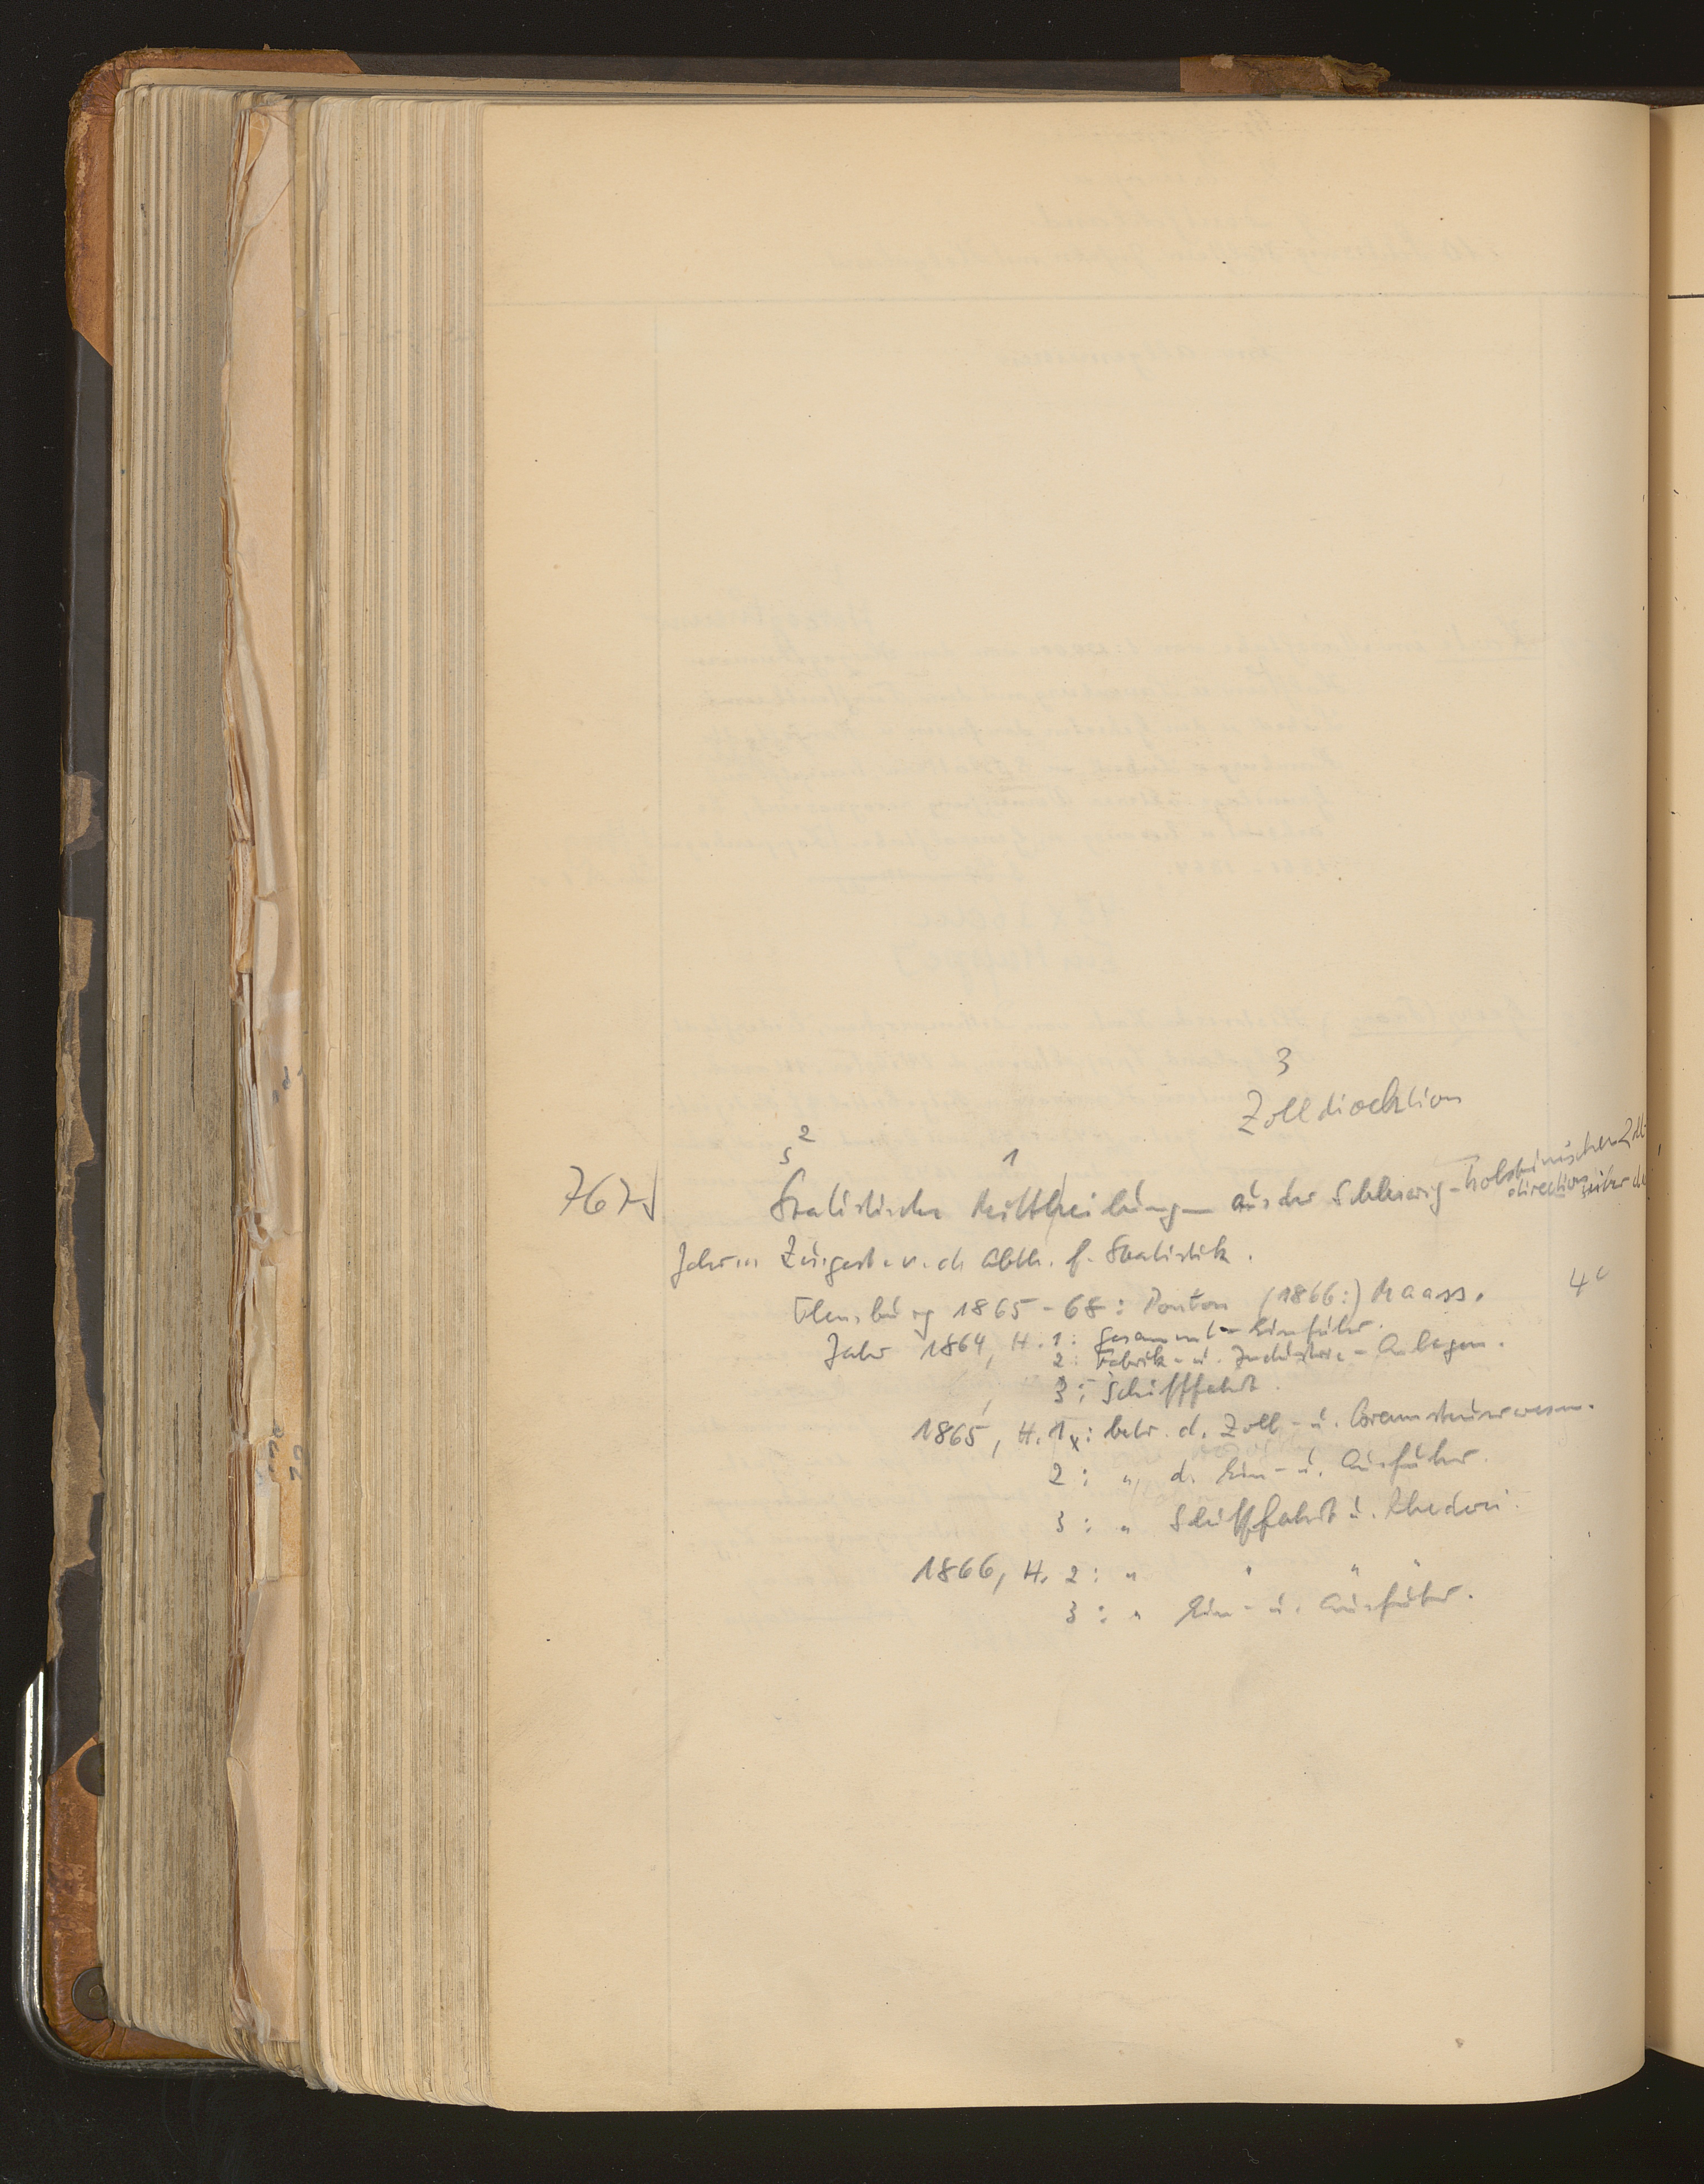 3
Zolldirektion
2
s 1
7675 Statistische Mittheilungen aus der Schleswig-holsteinischen Zoll-
direction
Jahr Zusgest. v. d. Abth. f. Statistik.
4°
Flensburg 1865-68: Ponton (1866:) Maass.
Jahr 1864, H. 1: Gesammt-Einfuhr.
2: Fabrik- u. Industrie-Anlagen.
3: Schifffahrt.
1865, H. 1x: betr. d. Zoll- u. Brennsteuerwesen.
2: " d. Ein- u. Ausfuhr.
3: " Schifffahrt u. Rhederei.
1866, H. 2: " " " "
3: " Ein- u. Ausfuhr.